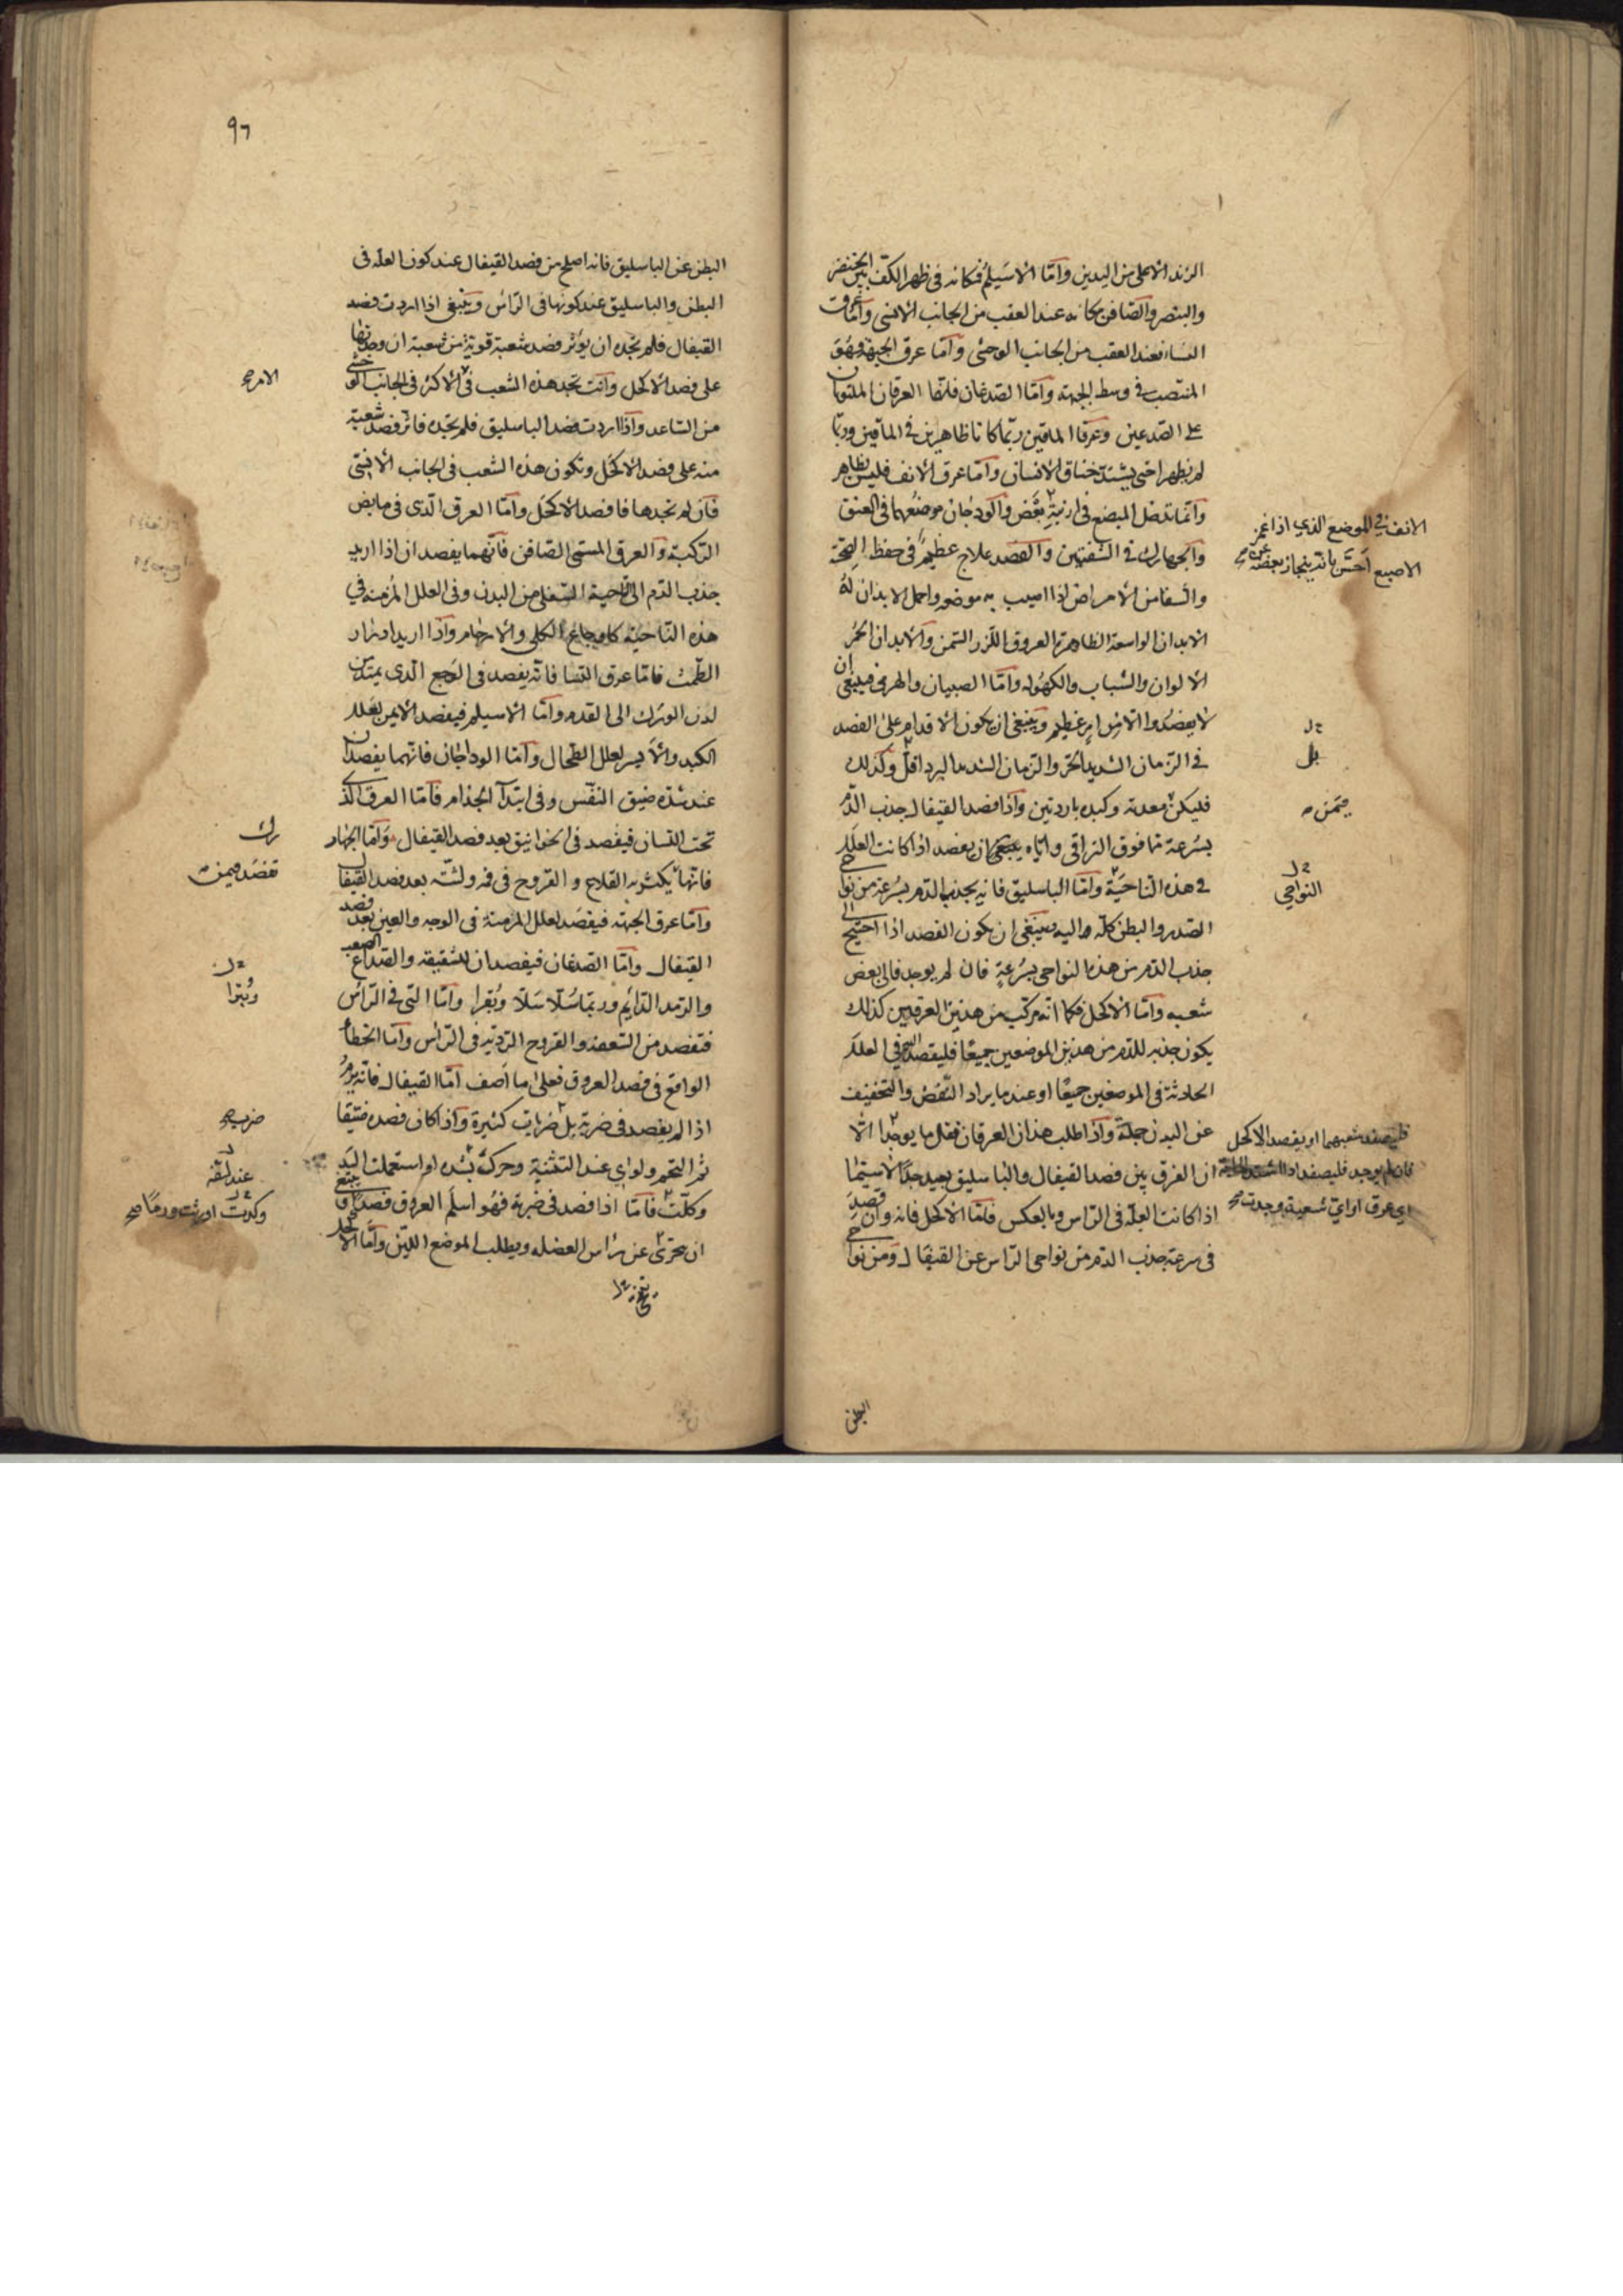 الزند الاعلى من اليدين وامّا الاسيلم فمكانه في ظهر الكفّ بين الخنصر
والبنصر والصّافن مكانه عند العقب من الجانب الانسي وامّا عرق
النسا فعند العقب من الجانب الوحشي وامّا عرق الجبهة فهو
المنتصب في وسط الجبهة وامّا الصّدغان فلهما العرقان الملتويان
على الصّدغين وعرقا الماقين ربّما كانا ظاهرين في الماقين وربّما
لم يظهرا حتى يشتدّ خناق الانسان وامّا عرق الانف فليس بظاهر
وانّما تدخل المبضع في ارنبته بغمض والودجان موضعهما في العنق
الانف في الموضع الذي اذا غمز
الاصبع احسّ بانّه ينحاز بعضه عن
والجهارك في الشفتين والفصد علاج عظيم في حفظ الصحّة
والشفا من الامراض اذا اصيب به موضعه واحمل الابدان له
الابدان الواسعة الظاهرة العروق اللزر السّمن والابدان الحمر
الالوان والشباب والكهوله وامّا الصبيان والهرمى فينبغي ان
لا يفصدوا الا من امر عظيم وينبغي ان يكون الاقدام على الفصد
بل
في الزمان الشديد الحرّ والزمان الشديد البرد اقلّ وكذلك
فليكن معدته وكبده باردتين واذا فصد القيفال جذب الدّم
ممّن
بسرعة ممّا فوق التراقي وايّاه ينبغي ان يفصد اذا كانت العلل
في هذه الناحيّة وامّا الباسليق فانه يجذب الدّم بسرعة من نواحي
النواحي
الصّدر والبطن كلّه واليه ينبغي ان يكون الفصد اذا احتيج الى
جذب الدّم من هذه النواحي بسرعةٍ فان لم يوجد فالى بعض
شعبه وامّا الاكحل فكما انّه مركّب من هذين العرقين كذلك
يكون جذبه للدّم من هذين الموضعين جميعًا فليقصد اليه في العلل
الحادثة في الموضعين جميعًا او عند ما يراد النّفض والتخفيف
عن البدن جملةً واذا طلب هذان العرقان فقل ما يوجدا الّا
فليفصد شعبهما او يفصد الاكحل
فان لم يوجد فليفصد اذا اشتدّت الحاجة
اي عرق او ايّ شعبة وجدت صح
ان الفرق بين فصد القيفال والباسليق بعيد جدًّا لا سيّما
اذا كانت العلّة في الرّاس وبالعكس فامّا الاكحل فانه وان قصر
في سرعة جذب الدّم من نواحي الرّاس عن القيفال ومن نواحي
البطن
٩٦
البطن عن الباسليق فانه اصلح من فصد القيفال عند كون العلّة في
البطن والباسليق عند كونها في الرّاس وينبغي اذا اردت فصد
القيفال فلم تجده ان يؤثر فصد شعبة قوية من شعبه ان وجدتها
على فصد الاكحل وانت تجد هذه الشعب في الاكثر في الجانب الوحشي
الامر صح
من السّاعد واذا اردت فصد الباسليق فلم تجده فاثر فصد شعبة
منه على فصد الاكحل وتكون هذه الشعب في الجانب الانسي
فان لم تجدها فافصد الاكحل وامّا العرق الّذي في مابض
الرّكبة والعرق المسمّى الصّافن فانّهما يفصدان اذا اريد
جذب الدّم الى الناحية السّفلى من البدن وفي العلل المزمنه في
هذه النّاحيّة كاوجاع الكلى والارحام واذا اريد ادرار
الطّمث فامّا عرق النّسا فانّه يفصد في الوجع الّذي يمتدّ من
لدن الورك الى القدم وامّا الاسيلم فيفصد الايمن لعلل
الكبد والايسر لعلل الطّحال وامّا الوداجان فانّهما يفصدان
عند شدّة ضيق النّفس وفي ابتدآ الجذام فامّا العرق الذي
تحت اللّسان فيفصد في الخوانيق بعد فصد القيفال وامّا الجهار
رك
فانّها يكثر به القلاع والقروح في فمه ولثّته بعد فصد القيفال
تفصد فيمن
وامّا عرق الجبهه فيفصد لعلل المزمنة في الوجه والعين بعد فصد
القيفال وامّا الصّدغان فيفصدان للشقيقه والصّداع الصعب
والرّمد الدّايم وربّما سُلّا سَلّا وبُترا وامّا التي في الرّاس
وبُترا
فتفصد من السّعفة والقروح الرّديّه في الرّاس وامّا الخطأ
الواقع في فصد العروق فعلى ما اصف امّا القيفال فانّه يرمُ
اذا لم يفصد في ضربة بل ضربات كثيرة واذا كان فصده ضيّقا
ضرب صح
ثم التحم ولواي عند التثنية وحركت بشده او استعملت اليَد
عند لفّه
وكلّت فامّا اذا فصد في ضربة فهو اسلم العروق فصدًا
وكدّت اورثت ورمًا صح
ان يتحرّى عن راس العضله ويطلب الموضع الليّن وامّا الاكحل